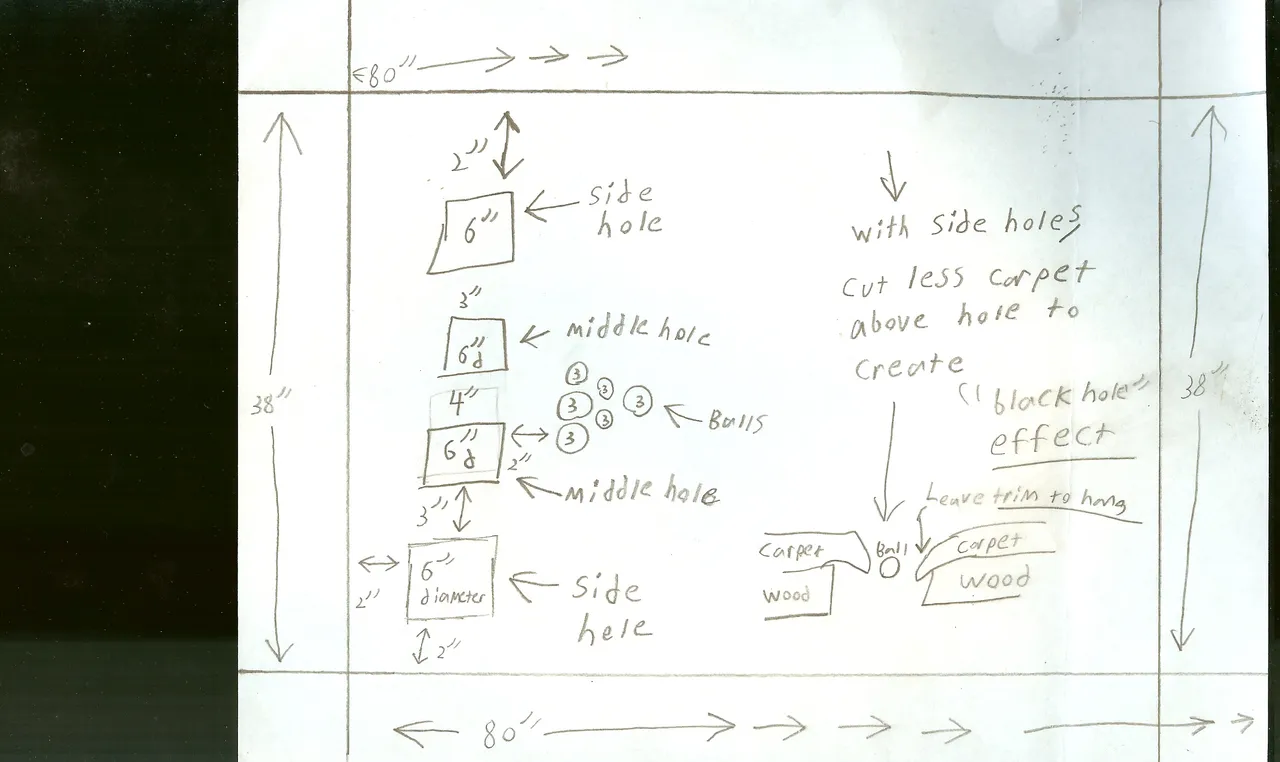 80"
2"
side
hole
6"
3"
middle hole
6"d
4"
3
3
3
3
3
3
Balls
6"d
2"
middle hole
3"
6"
diameter
2"
side
hele
2"
38"
with side holes,
cut less carpet
above hole to
create
"black hole"
effect
Leave trim to hang
carpet
Ball
carpet
wood
wood
38"
80"